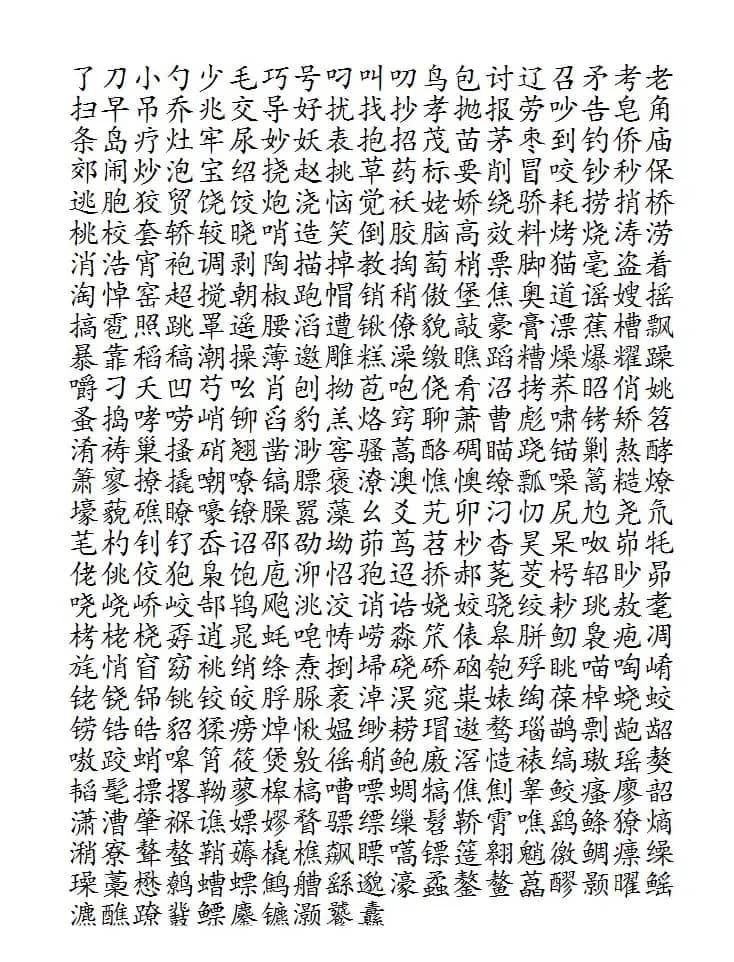 了刀小勺少毛巧号叼叫叨鸟包讨辽召矛考老
扫早吊乔兆交导好扰找抄孝抛报劳吵告皂角
条岛疗灶牢尿妙妖表抱招茂苗茅枣到钓侨庙
郊闹炒泡宝绍挠赵挑草药标要削冒咬钞秒保
逃胞狡贸饶饺炮浇恼觉袄姥娇绕骄耗捞捎桥
桃校套轿较晓哨造笑倒胶脑高效料烤烧涛涝
消浩宵袍调剥陶描掉教掏萄梢票脚猫毫盗着
淘悼窑超搅朝椒跑帽销稍傲堡焦奥道谣嫂摇
搞雹照跳罩遥腰滔遭锹僚貌敲豪膏漂蕉槽飘
暴靠稻稿潮操薄邀雕糕澡缴瞧蹈糟燥爆耀躁
嚼刁夭凹芍吆肖刨拗苞咆侥肴沼拷荞昭俏姚
蚤捣哮唠峭铆舀豹羔烙窍聊萧曹彪啸铐矫笤
淆祷巢搔硝翘凿渺窖骚蒿酪碉瞄跷锚剿熬酵
箫寥撩撬嘲嘹镐膘褒潦澳憔懊缭瓢噪篙糙燎
壕藐礁瞭嚎镣臊嚣藻幺爻艽卯汈忉尻尥尧氘
芼杓钊钌岙诏邵劭坳茆茑苕杪杳昊杲呶峁牦
佬佻佼狍枭饱庖泖怊孢迢挢郝荛茭枵轺眇昴
哓峣峤峧郜鸨飑洮洨诮诰娆姣骁绞耖珧敖耄
栲栳桡孬逍晁蚝唣帱崂淼笊俵皋胼魛袅疱凋
旄悄窅窈祧绡绦焘捯埽硗硚硇匏殍眺喵啕崤
铑铙锦铫铰皎脬脲袤淖淏窕粜婊绹葆棹蛲蛟
铹锆皓貂猱痨焯愀媪缈耢瑁遨骜瑙鹋剽龅龆
嗷跤蛸嗥筲筱煲敫徭艄鲍廒滘慥裱缟璈瑶獒
韬髦摽撂勒蓼槔槁嘈嘌蜩犒僬劁睾鲛瘙廖韶
潇漕肇褓谯嫖嫪瞀骠缥缫髫鞒霄噍鹞鲦獠熵
潲寮聱螯鞘薅橇樵飙瞟噶镖篴翱魈徼鲷瘭缲
璪藁懋鹩螵螵鹪艚繇邈濠蟊鏊鳌藠醪颢曜鳐
瀌醮蹽鼗鳔鏖镳灏饕纛